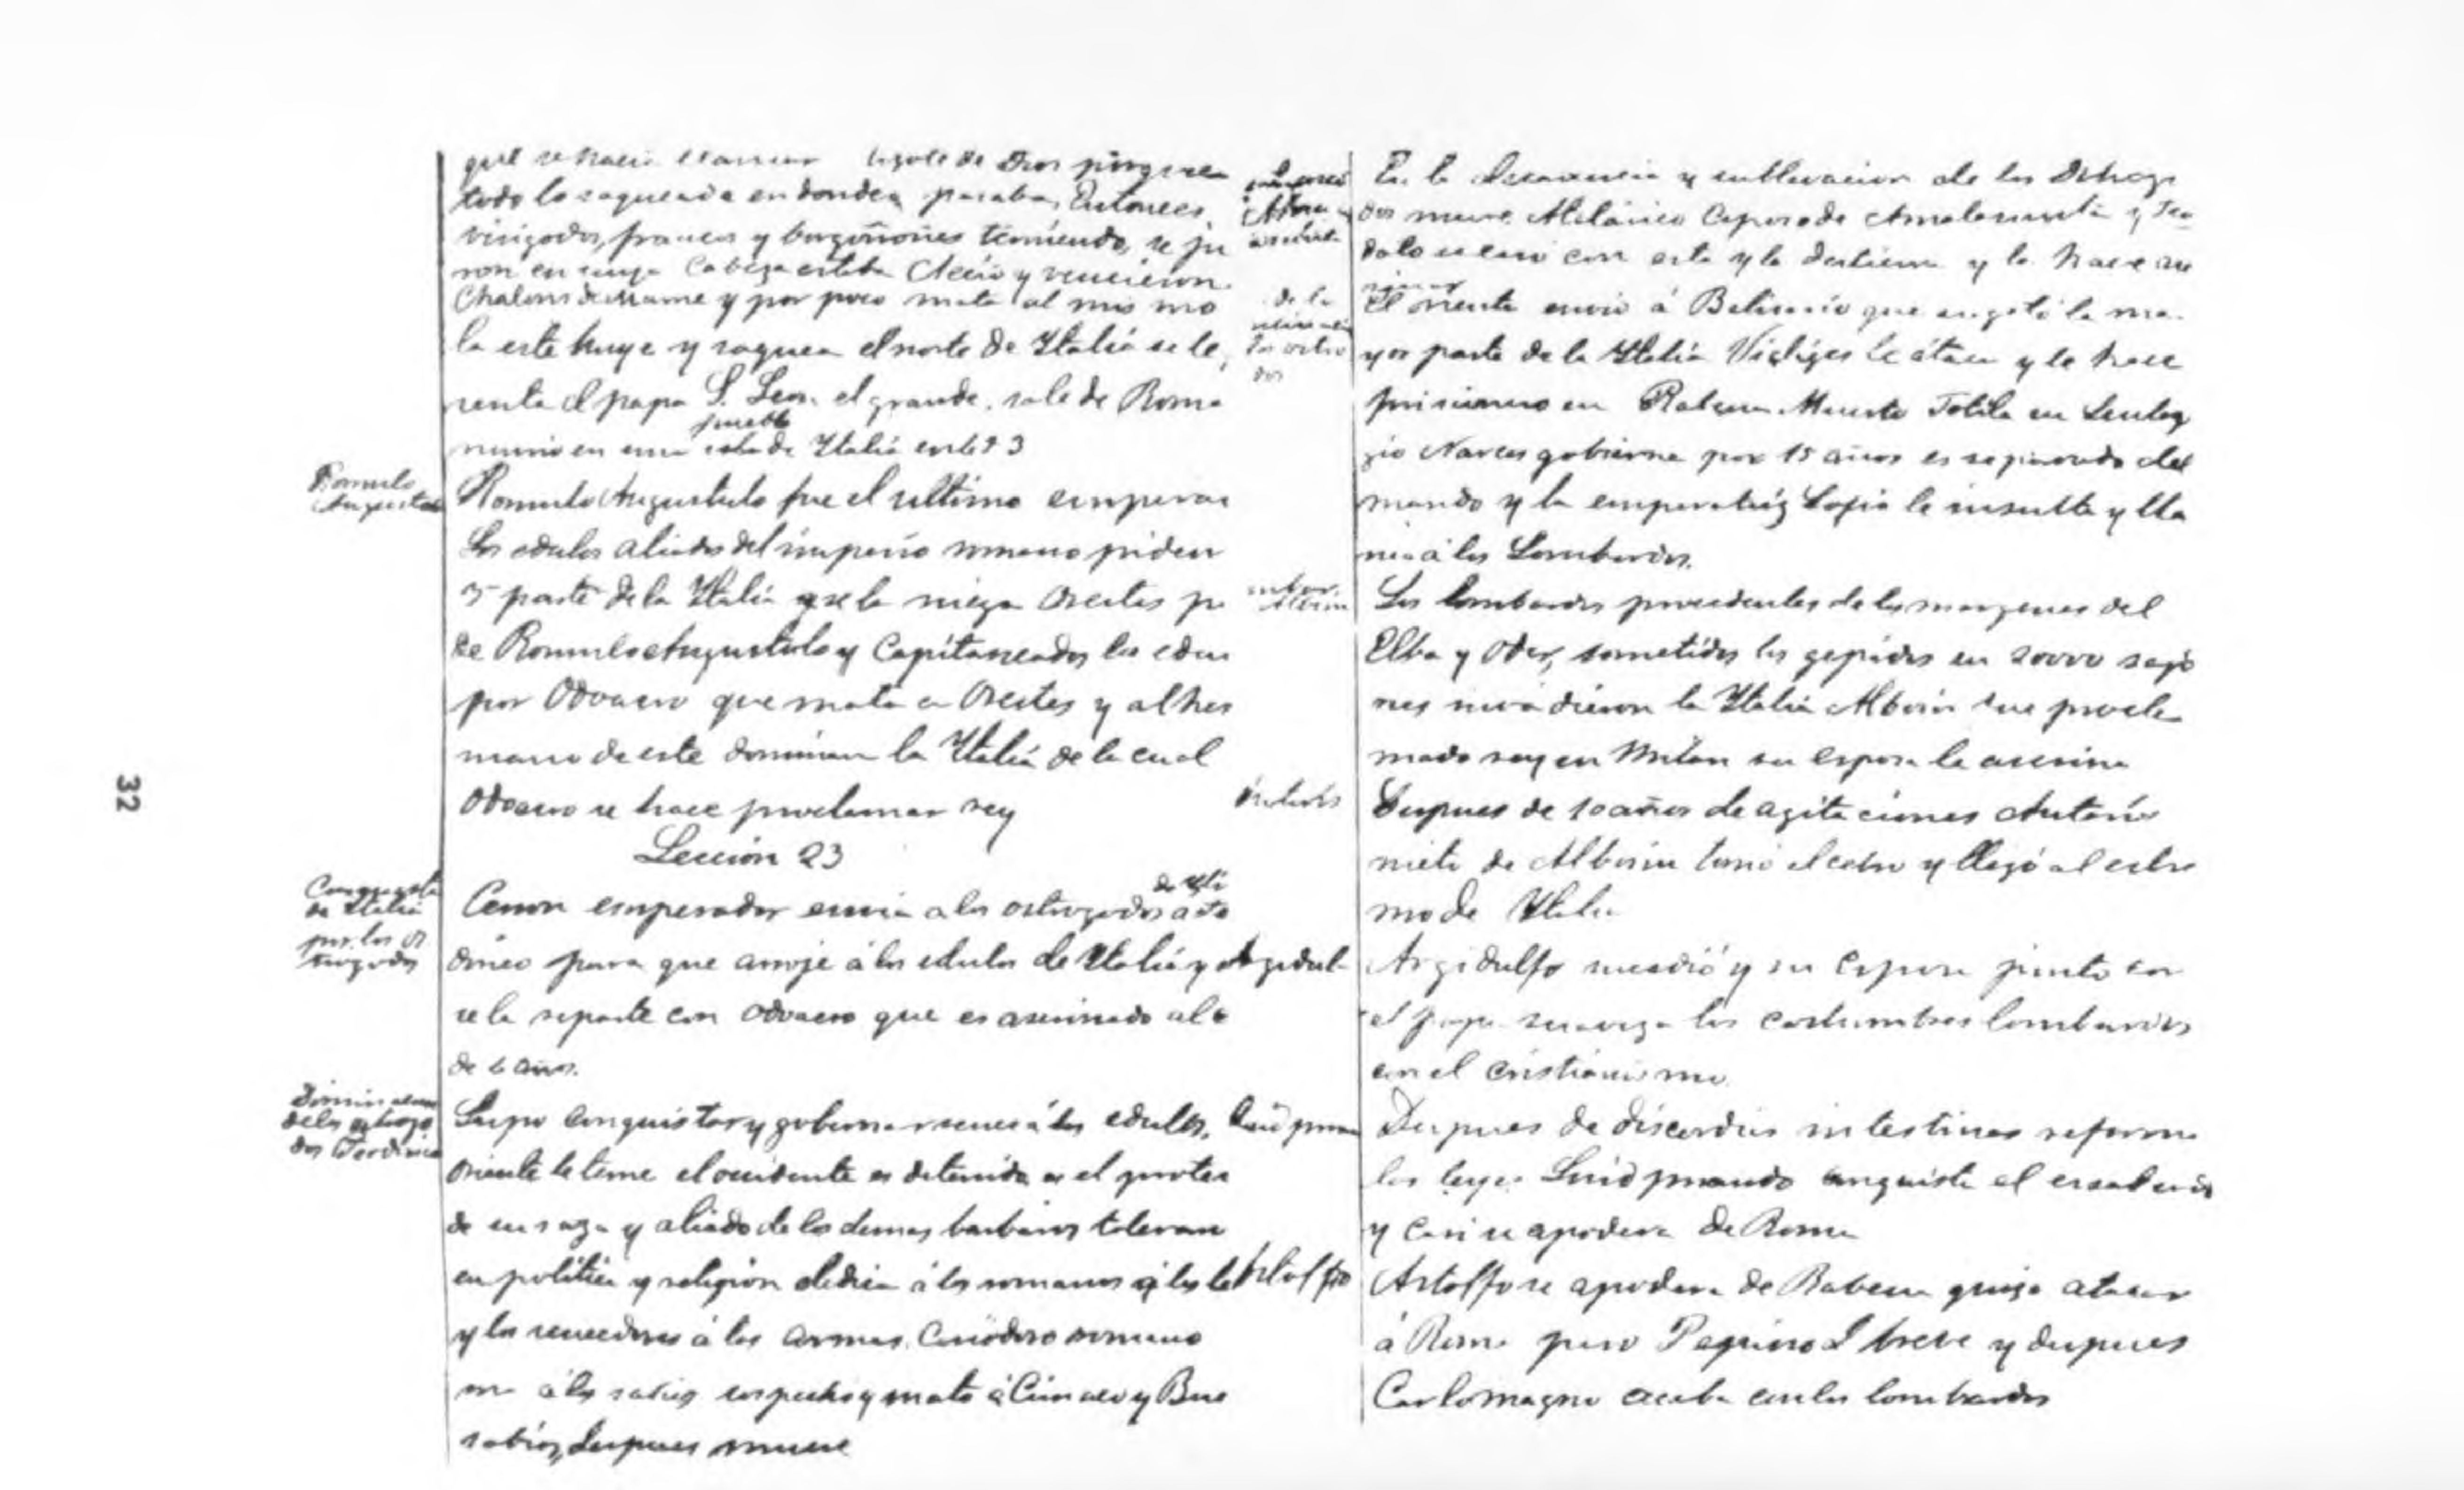 que se hacia llamar de Dios porque
todo lo saqueaba en donde pasaba, Entonces,
visigodos, francos y borgoñones temiendo, se ju
ron en cuya Cabeza estaba Aecio y vencieron
Chalons de Marne y por poco mata al mis mo
la este huye y saquea el norte de Italia se le,
senta el papa S. Leon el grande, sale de Roma
pueblo
murio en una de Italia en 453
Romulo
Augustulo
Romulo Augustulo fue el ultimo empera
Los edulos aliados del imperio romano piden
3ª parte de la Italia y se la niega Orestes p
de Romulo Augustulo y Capitaneados los edu
por Odoacro que mata a Orestes y al her
mano de este dominan la Italia de la cual
Odoacro se hace proclamar rey
Lección 23
Conquista
de Italia
por los os
trogodos
Cenon emperador envia a los ostrogodos
dorico para que arroje á los edulos de Italia y
se la reparte con Odoacro que es asesinado al
de 6 años.
Dominacion
de los ostrogo
dos Teodorico
Supo conquistar y gobernar vence á los edulos,
Oriente le teme el occidente es el protec
de su raza y aliado de los demas barbaros toleran
en politica y religion dedica á los romanos á las le
y los vencedores á las armas. Casiodoro romano
á los sabios sospecho y mato á Cimaco y Boe
sabios, despues muere
de la
En la y sublevacion de los Ostrogo
dos muere Atalarico Esposo de Amalasunta y Teo
dato se caso con esta y la destierra y la hace
El oriente envio á Belisario que sugetó la ma
yor parte de la Italia Vitiges le ataca y le hace
prisionero en Rabena. Muerto Totila en
gio Narces gobierna por 15 años es separado del
mando y la emperatriz Sofia le insulta y lla
ma á los Lombardos.
Alboin
Los lombardos procedentes de las margenes del
Elba y Oder, sometidos los gepidos en 20000 sajo
nes invadieron la Italia Alboin fue procla
mado rey en Milan su esposa le asesina
Autaris
Despues de 10 años de agitaciones Autaris
nieto de Alboin tomó el cetro y llegó al estre
mo de Italia
Argidulf
Argidulfo sucedió y su Esposa junto con
el papa suaviza las costumbres lombardas
con el cristianismo.
Luidpran
Despues de discordias intestinas reforma
las leyes Luidprando conquista el
y casi se apodera de Roma
Astolfo
Astolfo se apodera de Rabena quizo atacar
á Roma pero Pepino el breve y despues
Carlomagno acaba con los lombardos
32